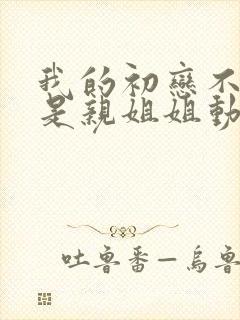 我的初戀不
是親姐姐動
吐魯番—烏魯